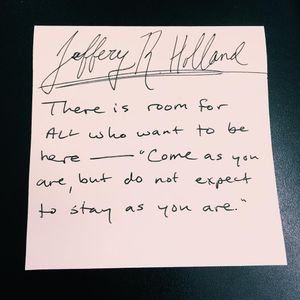 Jeffery R Holland
There is room for
ALL who want to be
here — "Come as you
are, but do not expect
to stay as you are."